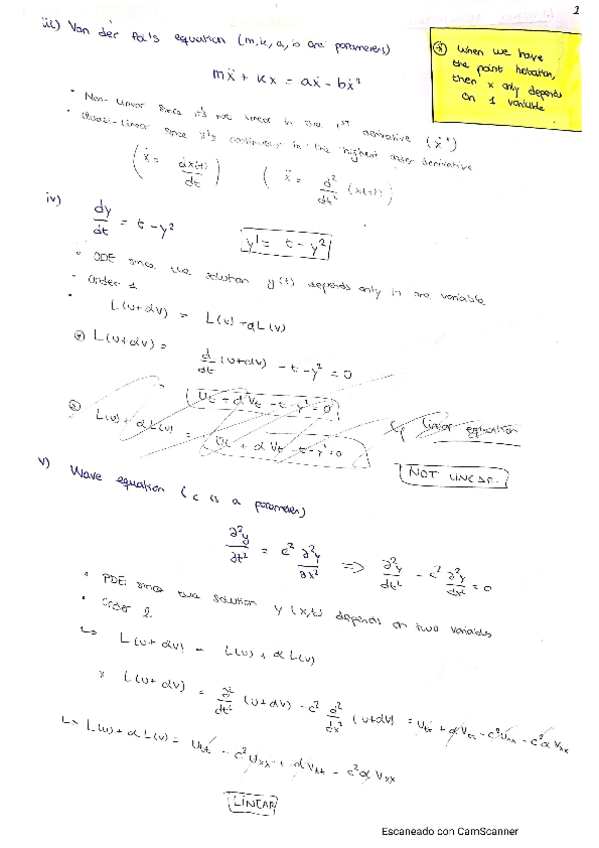 1
iii) Van der Pol's equation (m, k, a, b are parameters)
mẍ + kx = aẋ - bẋ³
* When we have
the point notation,
then x only depends
on 1 variable
• Non-linear since it's not linear in the 1st derivative
• Quasi-linear since it's continuous in the highest order derivative
( ẋ = dx(t)/dt ) ( ẍ = d²/dt² (x(t)) )
iv) dy/dt = t - y² y' = t - y²
• ODE since the solution y(t) depends only in one variable
• Order 1
• L(u+αv) = L(u)+αL(v)
L(u+αv) = d/dt (u+αv) - t - y² = 0
= Ut + αVt - t - y² = 0
L(u) + αL(v) = Ut + αVt - t - y² = 0
linear equation
NOT LINEAR.
v) Wave equation (c is a parameter)
∂²y/∂t² = c² ∂²y/∂x² => ∂²y/∂t² - c² ∂²y/∂x² = 0
• PDE: since the solution y(x,t) depends on two variables
• Order 2.
↳ L(u+αv) = L(u) + αL(v)
* L(u+αv) = ∂²/∂t² (u+αv) - c² ∂²/∂x² (u+αv) = Utt + αVtt - c²Uxx - c²αVxx
↳ L(u)+αL(v) = Utt - c²Uxx + αVtt - c²αVxx
LINEAR
Escaneado con CamScanner